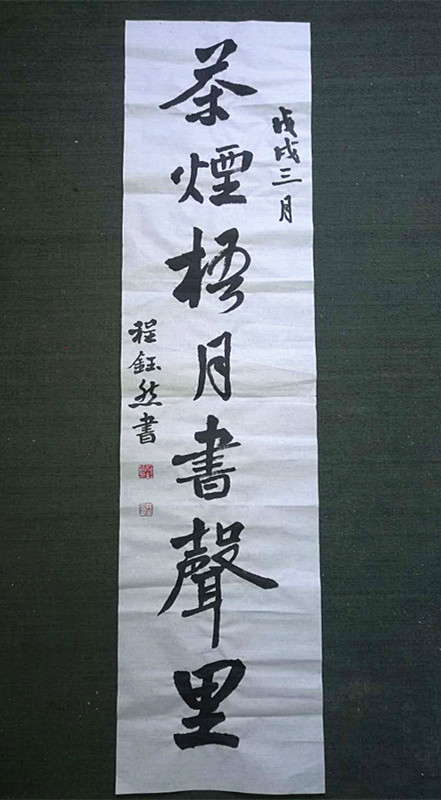 戊戌三月
茶煙梧月書聲里
程鈺然書